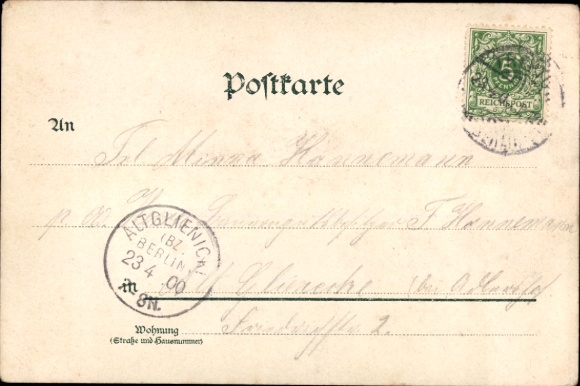 Postkarte
5
REICHSPOST
An
Frl Minna Hannemann
p. A. Baumgutsbesitzer F Hannemann
ALTGLIENICKE
(BZ.
BERLIN)
23 4 00
8N.
in Alt Glienicke (bei Adlershof
Wohnung
(Straße und Hausnummer)
Friedrichstr 2.